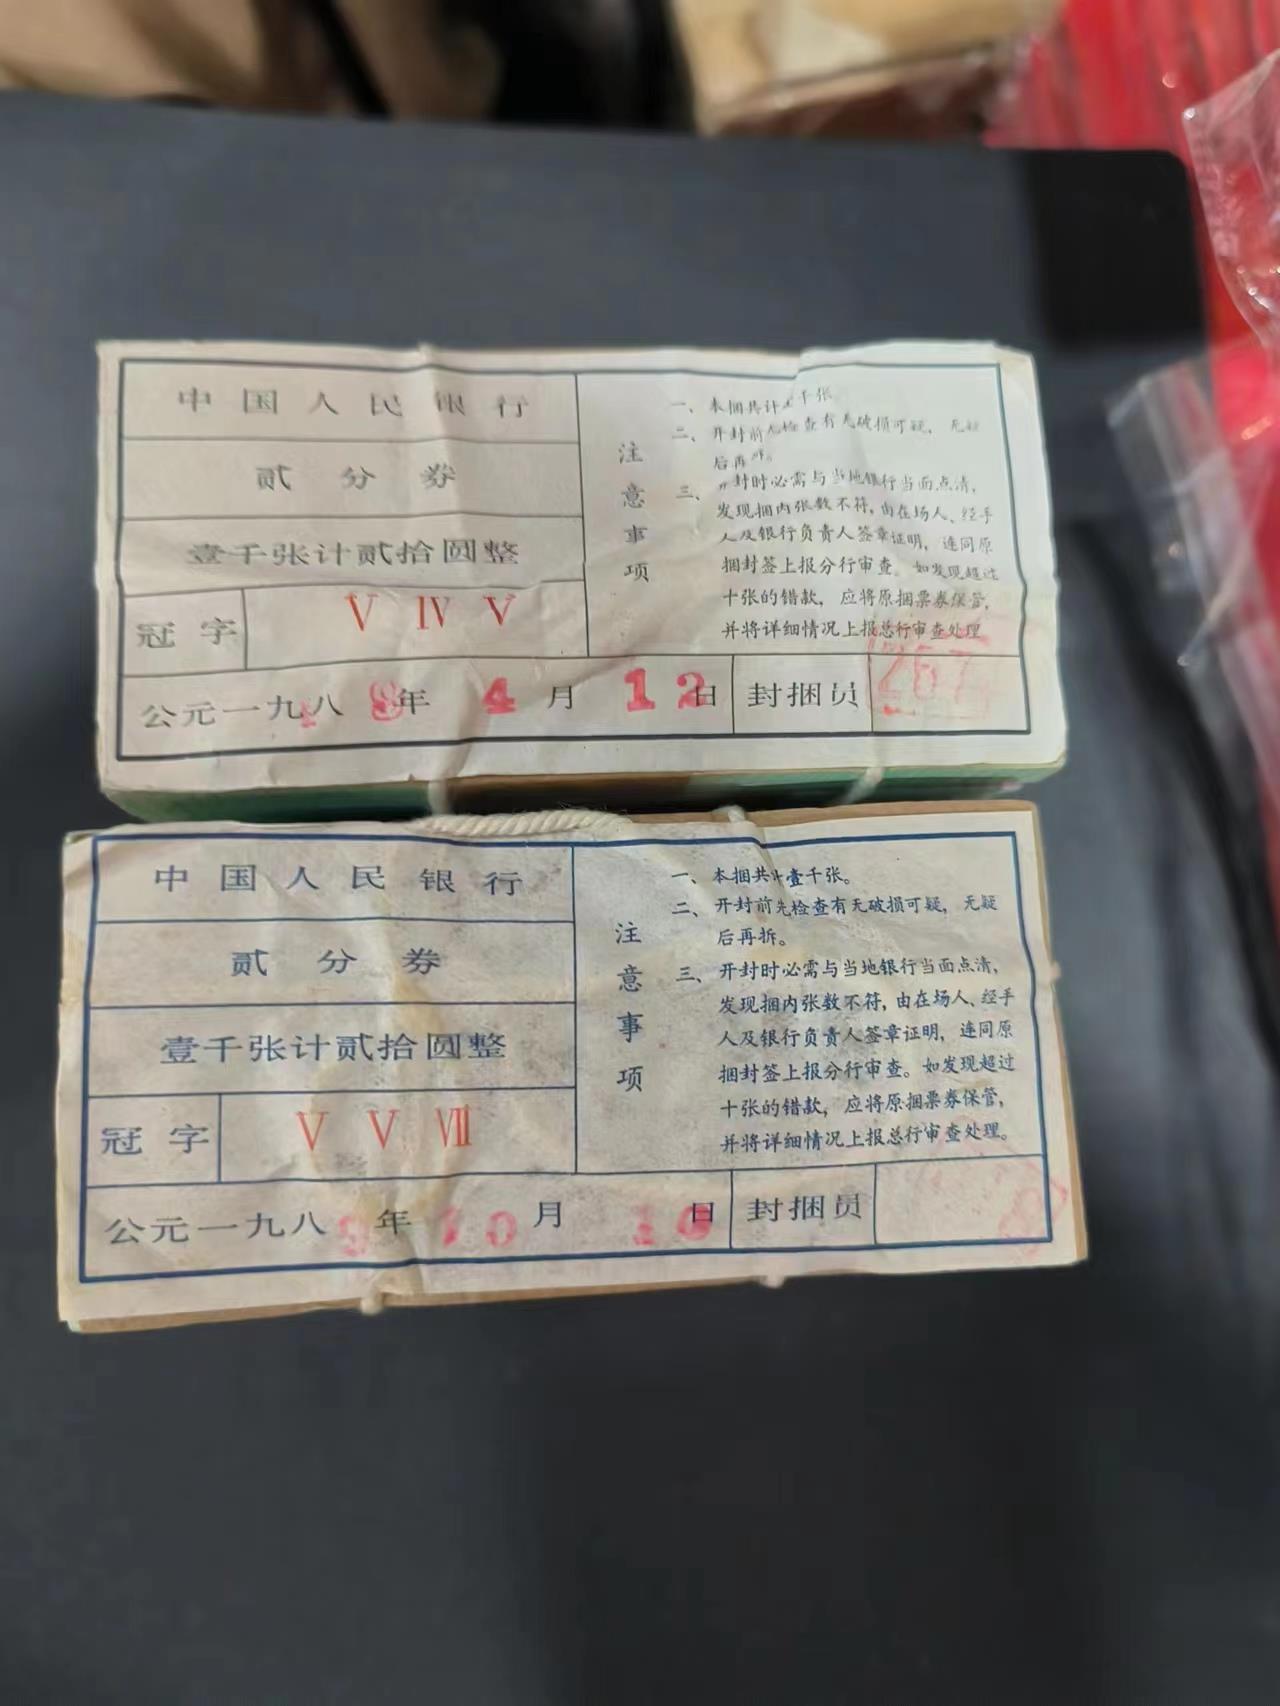 中国人民银行
贰分券
壹千张计贰拾圆整
冠字 V IV V
公元一九八8年4月12日
注意事项
一、本捆共计 千张。
二、开封前先检查有无破损可疑，无疑
后再拆。
三、开封时必需与当地银行当面点清，
发现捆内张数不符，由在场人、经手
人及银行负责人签章证明，连同原
捆封签上报分行审查。如发现超过
十张的错款，应将原捆票券保管，
并将详细情况上报总行审查处理
封捆员 267
中国人民银行
贰分券
壹千张计贰拾圆整
冠字 V V VII
公元一九八9年10月 日
注意事项
一、本捆共计壹千张。
二、开封前先检查有无破损可疑，无疑
后再拆。
三、开封时必需与当地银行当面点清，
发现捆内张数不符，由在场人、经手
人及银行负责人签章证明，连同原
捆封签上报分行审查。如发现超过
十张的错款，应将原捆票券保管，
并将详细情况上报总行审查处理。
封捆员